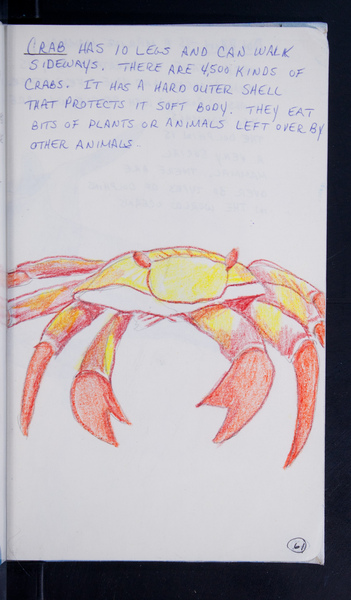 CRAB HAS 10 LEGS AND CAN WALK
SIDEWAYS. THERE ARE 4,500 KINDS OF
CRABS. IT HAS A HARD OUTER SHELL
THAT PROTECTS IT SOFT BODY. THEY EAT
BITS OF PLANTS OR ANIMALS LEFT OVER BY
OTHER ANIMALS.
61